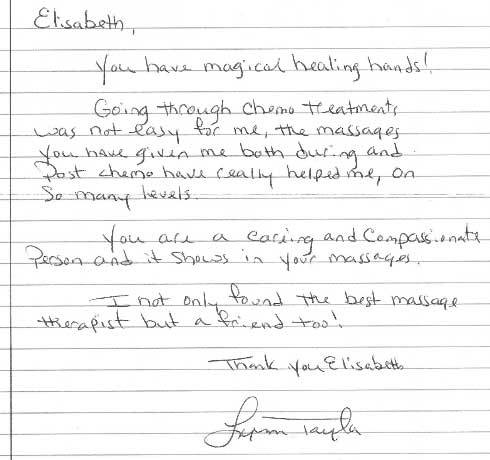 Elisabeth,
You have magical healing hands!
Going through Chemo treatments
was not easy for me, the massages
you have given me both during and
Post chemo have really helped me, on
So many levels.
You are a caring and Compassionate
Person and it shows in your massages.
I not only found the best massage
therapist but a friend too!
Thank you Elisabeth